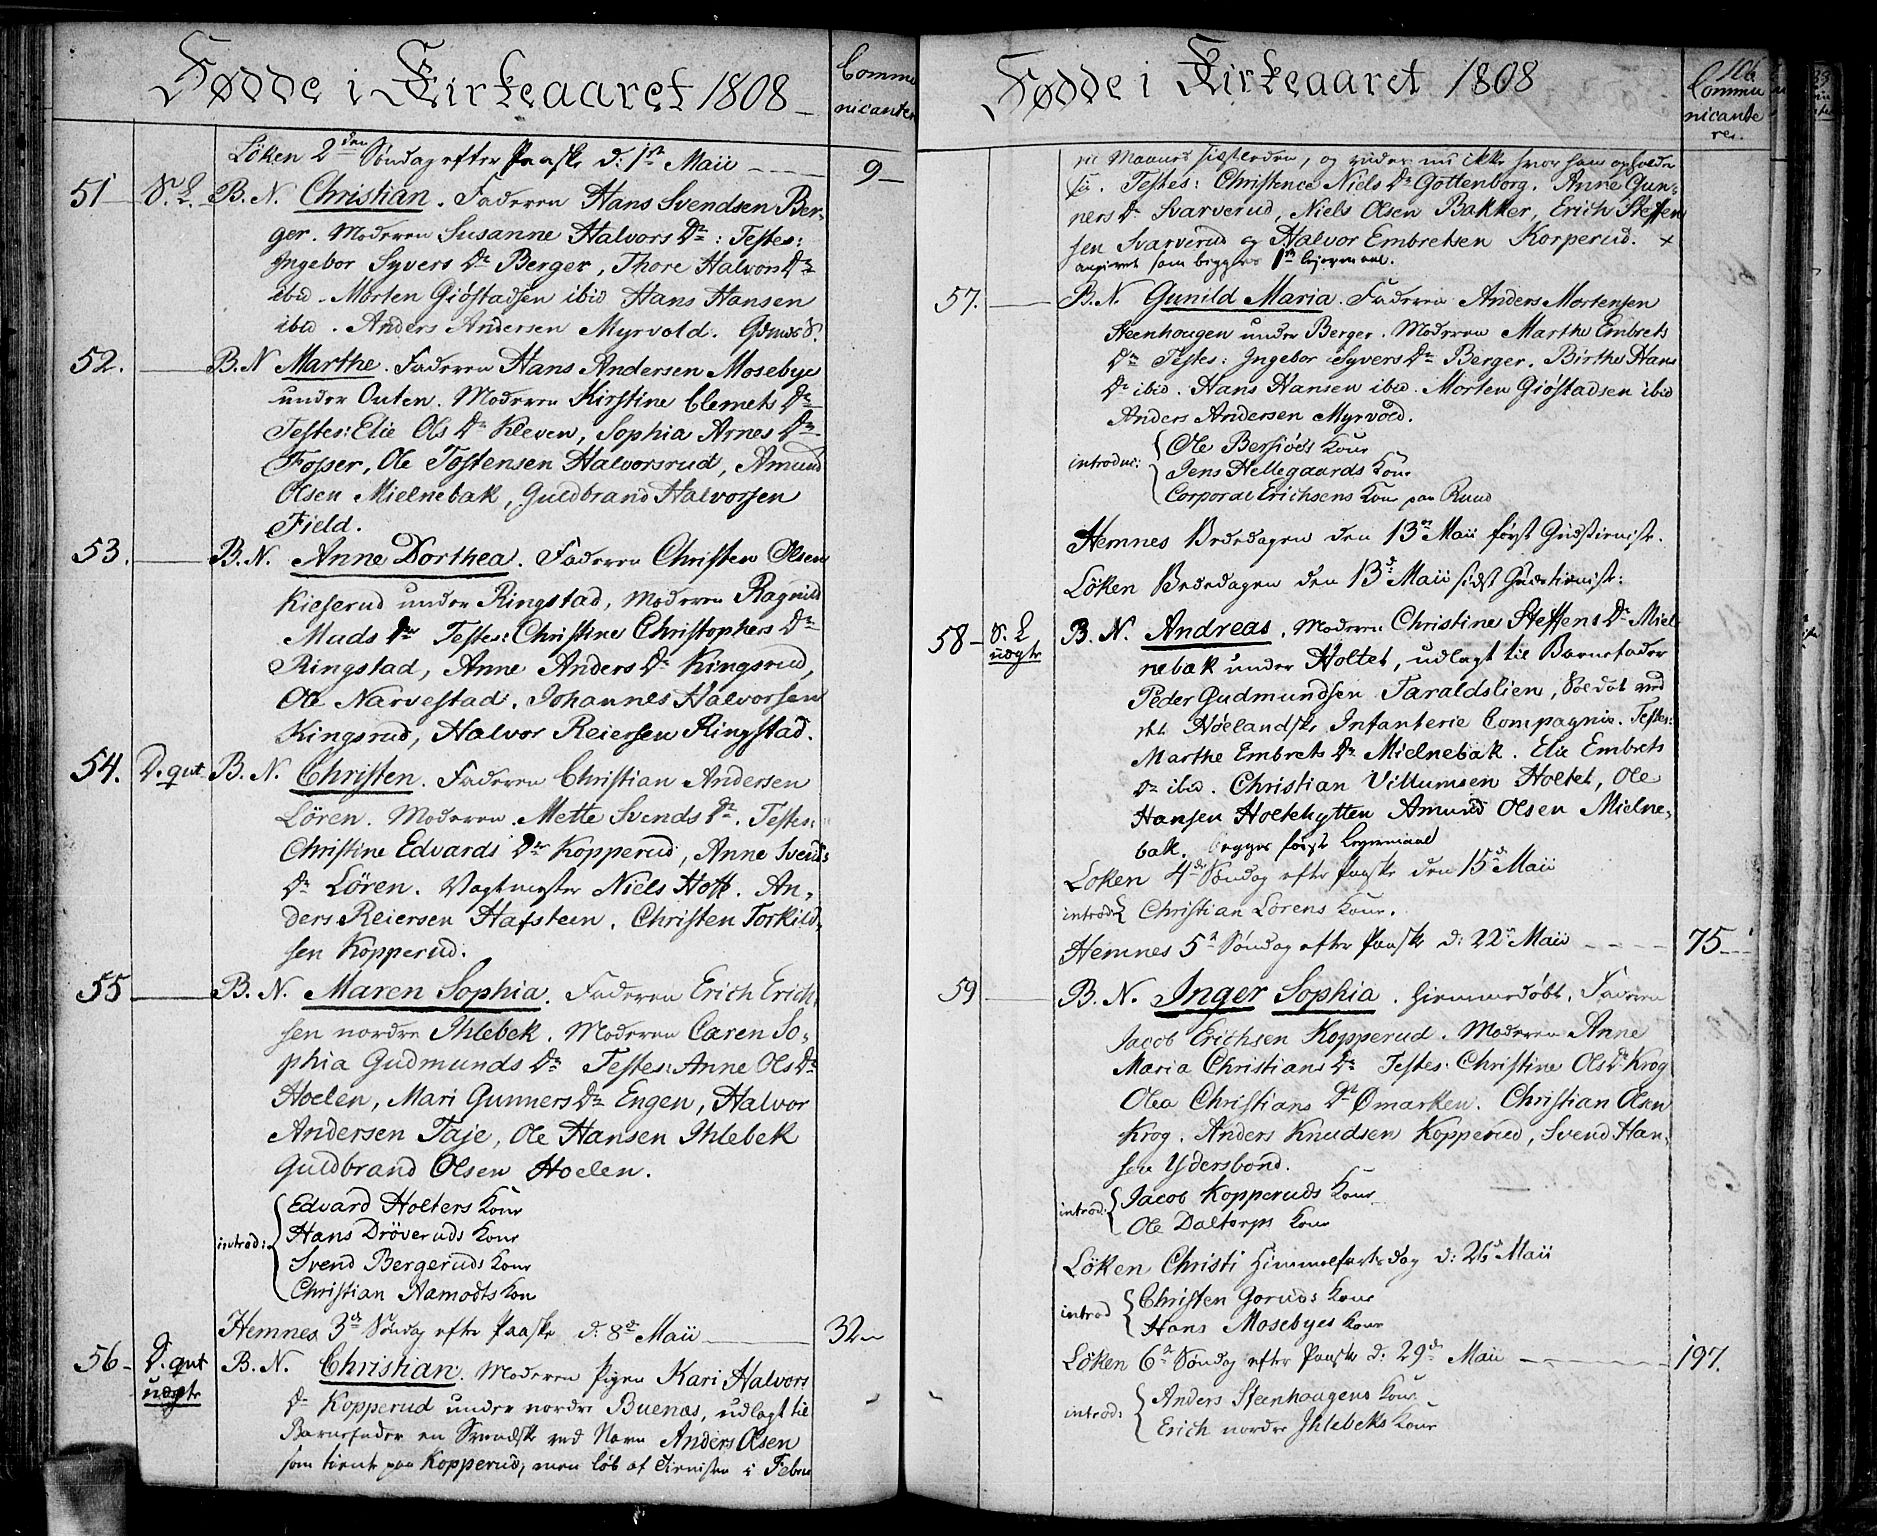 Fødde i Kirkeaaret 1808
Commu
nicanter
Löken 2den Søndag efter Paaske d: 1ste Maii 9
51 S. L. B. N. Christian. Faderen Hans Svendsen Ber-
ger. Moderen Susanne Halvors Dr: Testes:
Ingebor Syvers Dr Berger, Thore Halvors Dr
ibid. Morten Giöstadsen ibid Hans Hansen
ibid. Anders Andersen Myrvold.
52. B. N. Marthe. Faderen Hans Andersen Mosebye
under Outen. Moderen Kirstine Clemets Dr
Testes: Elie Ols Dr Kleven, Sophia Arnes Dr
Fosser, Ole Tostensen Halvorsrud, Amund
Olsen Mielnebak, Guldbrand Halvorsen
Field.
53. B. N. Anne Dorthea. Faderen Christen Olsen
Kieserud under Ringstad, Moderen Ragnild
Mads Dr Testes: Christine Christophers Dr
Ringstad, Anne Anders Dr Kingsrud,
Ole Narvestad. Johannes Halvorsen
Kingsrud, Halvor Reiersen Ringstad.
54. D. qut B. N. Christen. Faderen Christian Andersen
Lören. Moderen Mette Svends Dr. Testes:
Christine Edvards Dr Kopperud, Anne Svends
Dr Lören. Vagtmester Niels Hoff. An-
ders Reiersen Hafsteen. Christen Torkild-
sen Kopperud.
55 B. N. Maren Sophia. Faderen Erich Erich-
sen nordre Ihlebek. Moderen Caren So-
phia Gudmunds Dr Testes: Anne Ols Dr
Hoelen, Mari Gunners Dr Engen, Halvor
Andersen Taje, Ole Hansen Ihlebek
Guldbrand Olsen Hoelen.
introd: Edvard Holters Kone
Hans Dröveruds Kone
Svend Bergeruds Kone
Christian Aamodts Kon
Hemnes 3de Søndag efter Paaske d: 8de Maii 32
56 D. qut uægte B. N. Christian. Moderen Pigen Kari Halvors
Dr Kopperud under nordre Buenæs, udlagt til
Barnefader en Svendsk ved Navn Anders Olsen
som tiente paa Kopperud, men løb af Tienisten i Febru
Fødde i Kirkeaaret 1808
106
Commu
nicante
res.
Maaned sistleden, og vides nu ikke hvor han opholder
sig. Testes: Christence Niels Dr Gottenborg. Anne Gun-
ners Dr Svarverud, Niels Olsen Bakker, Erich Steffen
sen Svarverud og Halvor Embretsen Korperud. +
angivet som begges 1ste lejermaal.
57. B. N. Gunild Maria. Faderen Anders Mortensen
Steenhougen under Berger. Moderen Marthe Embrets
Dr Testes: Ingebor Syvers Dr Berger. Birthe Hans
Dr ibid. Hans Hansen ibid. Morten Giöstadsen ibid
Anders Andersen Myrvold.
introduc: Ole Bersiöes Kone
Jens Hellegaards Kone
Corporal Erichsens Kone paa Ruud
Hemnes Bededagen den 13de Maii først Gudstieniste.
Löken Bededagen den 13de Maii sidst Gudstieniste:
58 S. L. uægte B. N. Andreas. Moderen Christine Steffens Dr Miel-
nebak under Holtet, udlagt til Barnefader
Peder Gudmundsen Taraldslien, Soldat ved
det Hølandske Infanterie Compagnie. Testes:
Marthe Embrets Dr Mielnebak. Elie Embrets
Dr ibid. Christian Villumsen Holtet, Ole
Hansen Holtehytten Amund Olsen Mielne-
bak. begges første Lejermaal
Loken 4de Søndag efter Paaske den 15de Maii
introd Christian Lorens Kone.
Hemnes 5te Søndag efter Paaske d: 22de Maii 75
59 B. N. Inger Sophia. hiemmedøbt. Faderen
Jacob Erichsen Kopperud. Moderen Anne
Maria Christians Dr Testes: Christine Ols Dr Krog
Olea Christians Dr Ømarken. Christian Olsen
Krog. Anders Knudsen Kopperud, Svend Han-
sen Ydersbond.
introd: Jacob Kopperuds Kone
Ole Daltorps Kone
Löken Christi Himmelfartsdag d: 26de Maii
introd Christen Goruds Kone
Hans Mosebyes Kone
Löken 6te Søndag efter Paaske d: 29de Maii 197.
introd: Anders Steenhougens Kone
Erich nordre Ihlebeks Kone